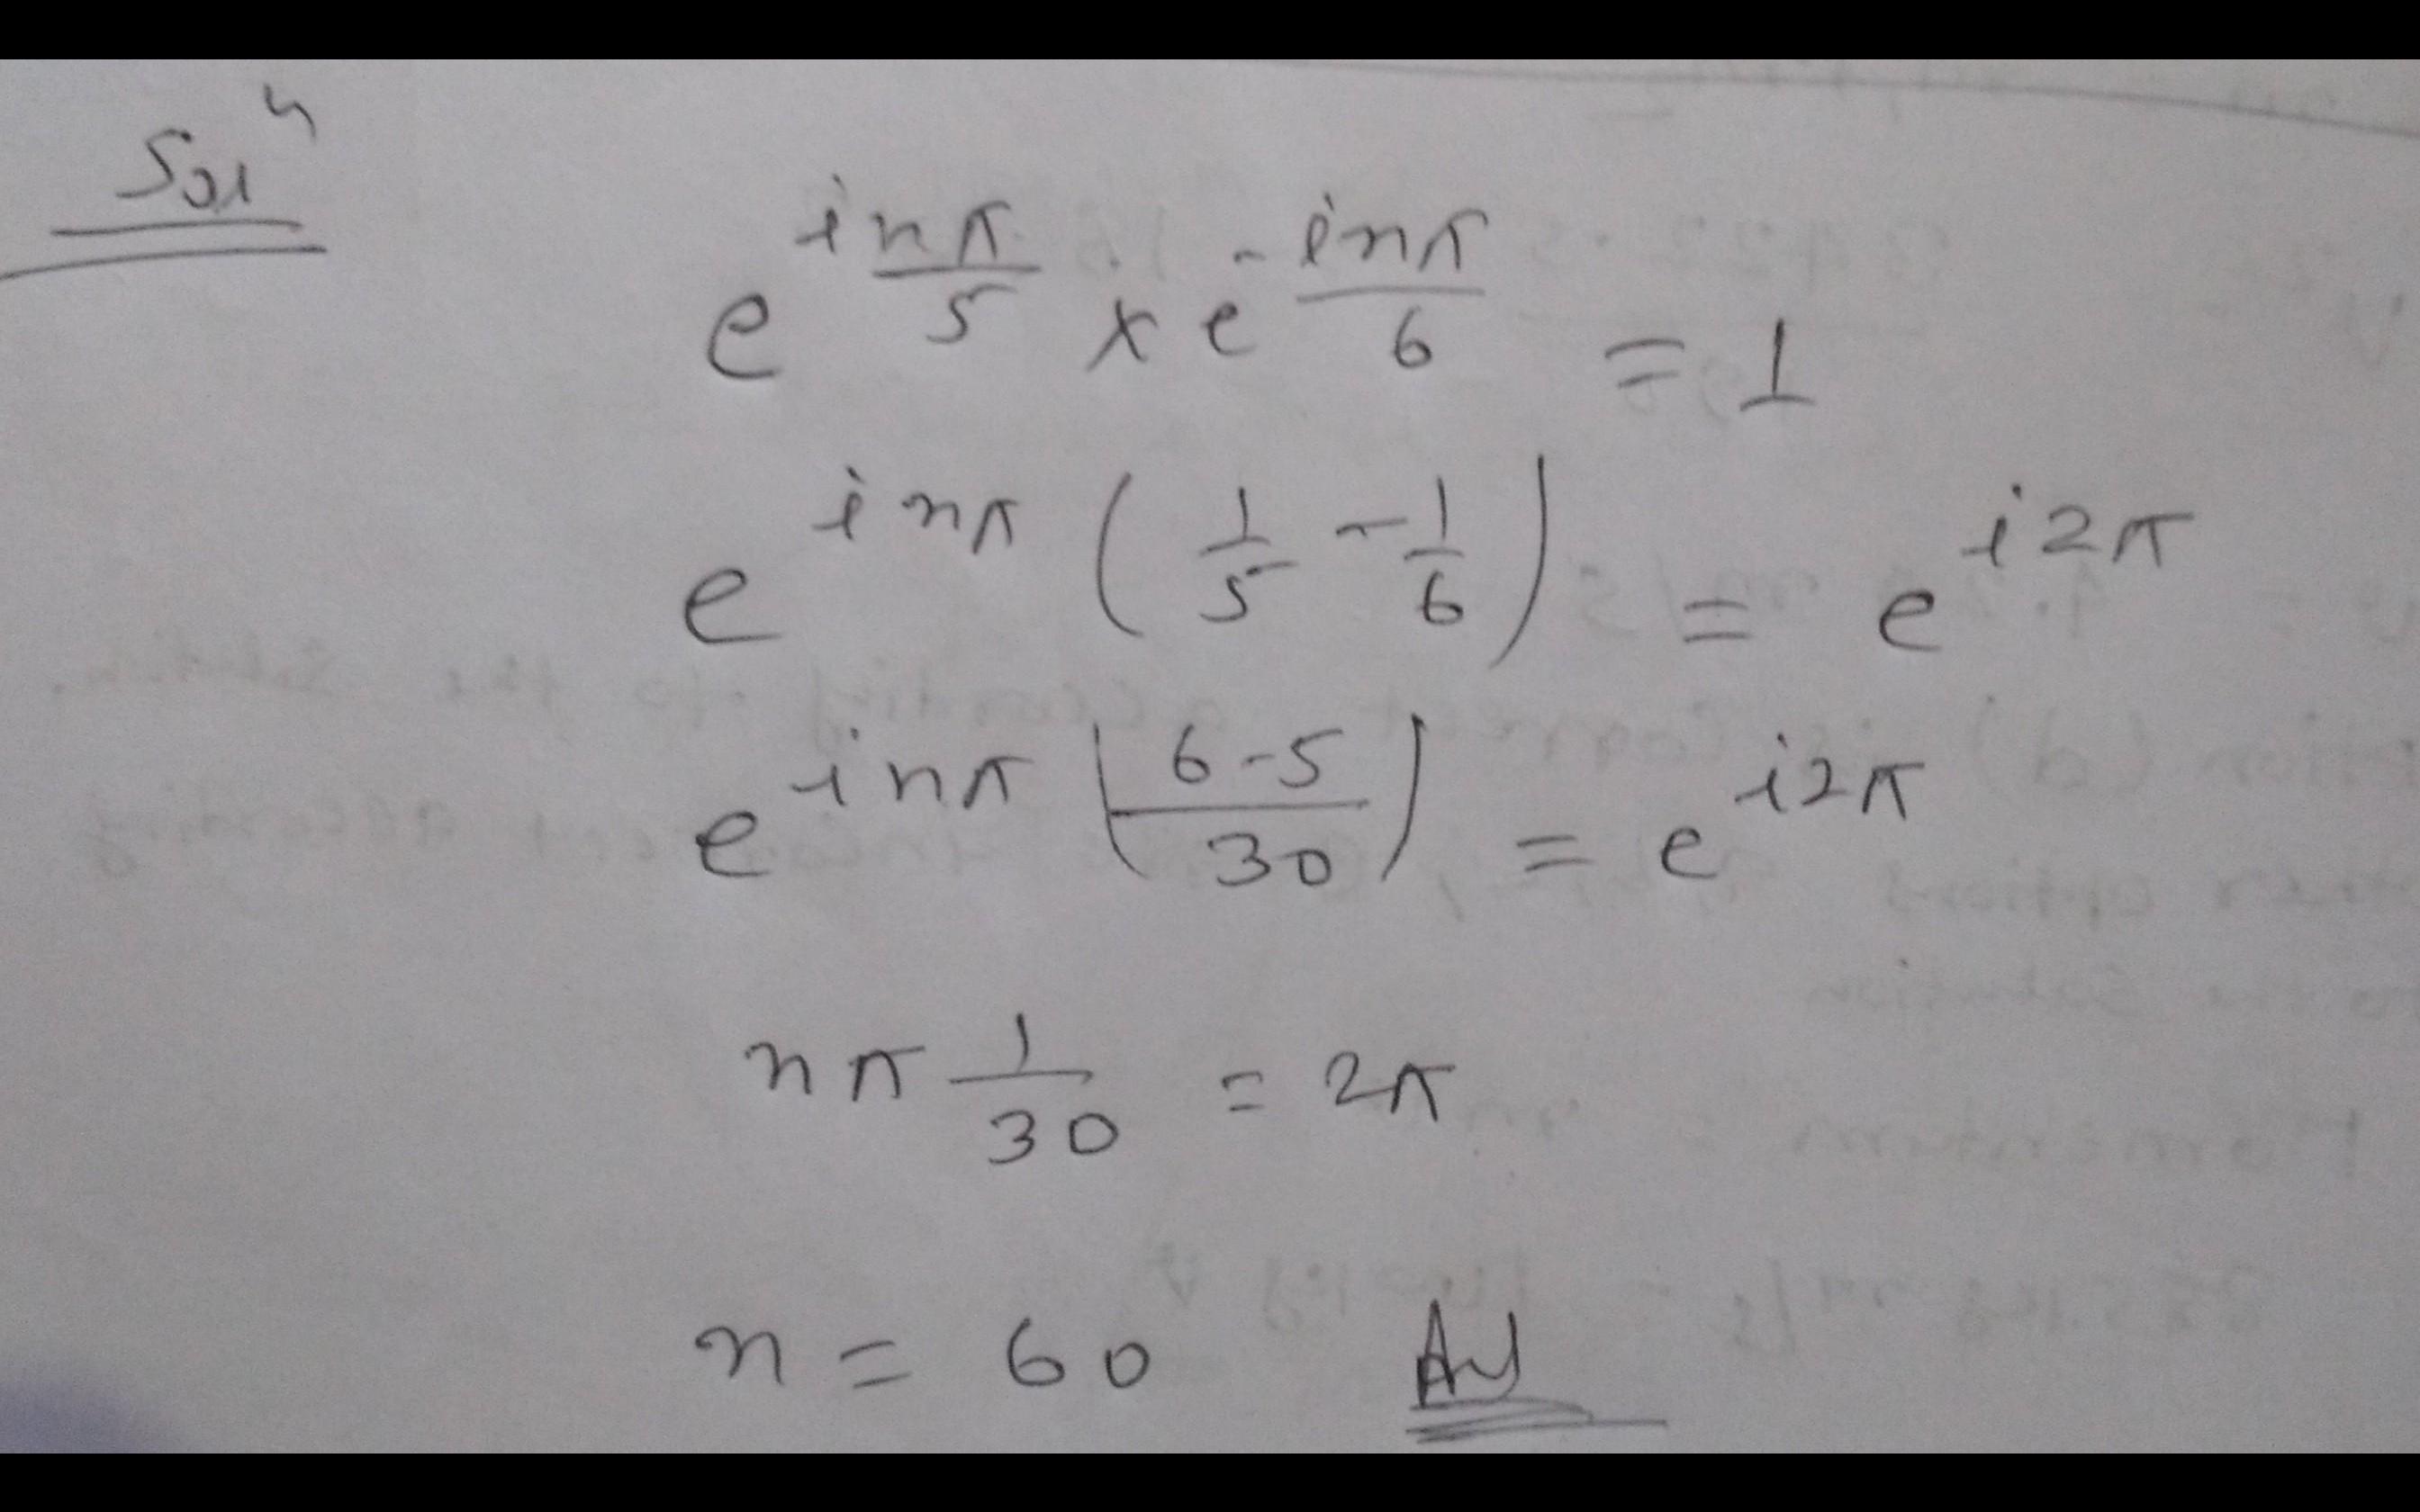 Solⁿ
e^(i nπ/5) × e^(-inπ/6) = 1
e^(inπ (1/5 - 1/6)) = e^(i2π)
e^(inπ ((6-5)/30)) = e^(i2π)
nπ 1/30 = 2π
n = 60 Ans